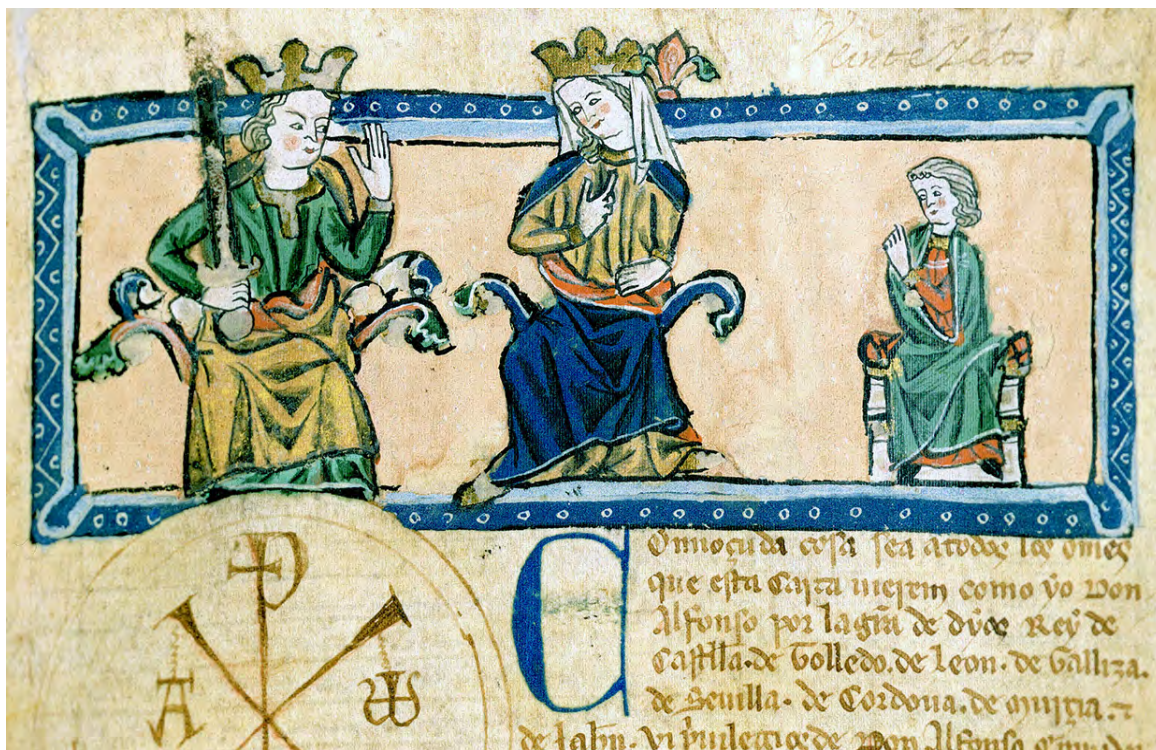 P
A ω
Connoçuda cosa sea a todos los omes
que esta carta uieren como yo Don
Alfonso por la gra de dios Rey de
Castilla. de Tolledo. de Leon. de Galliza.
de Seuilla. de Cordoua. de murcia. ⁊
de Jahn. Vi priuilegio de Don Alfonso